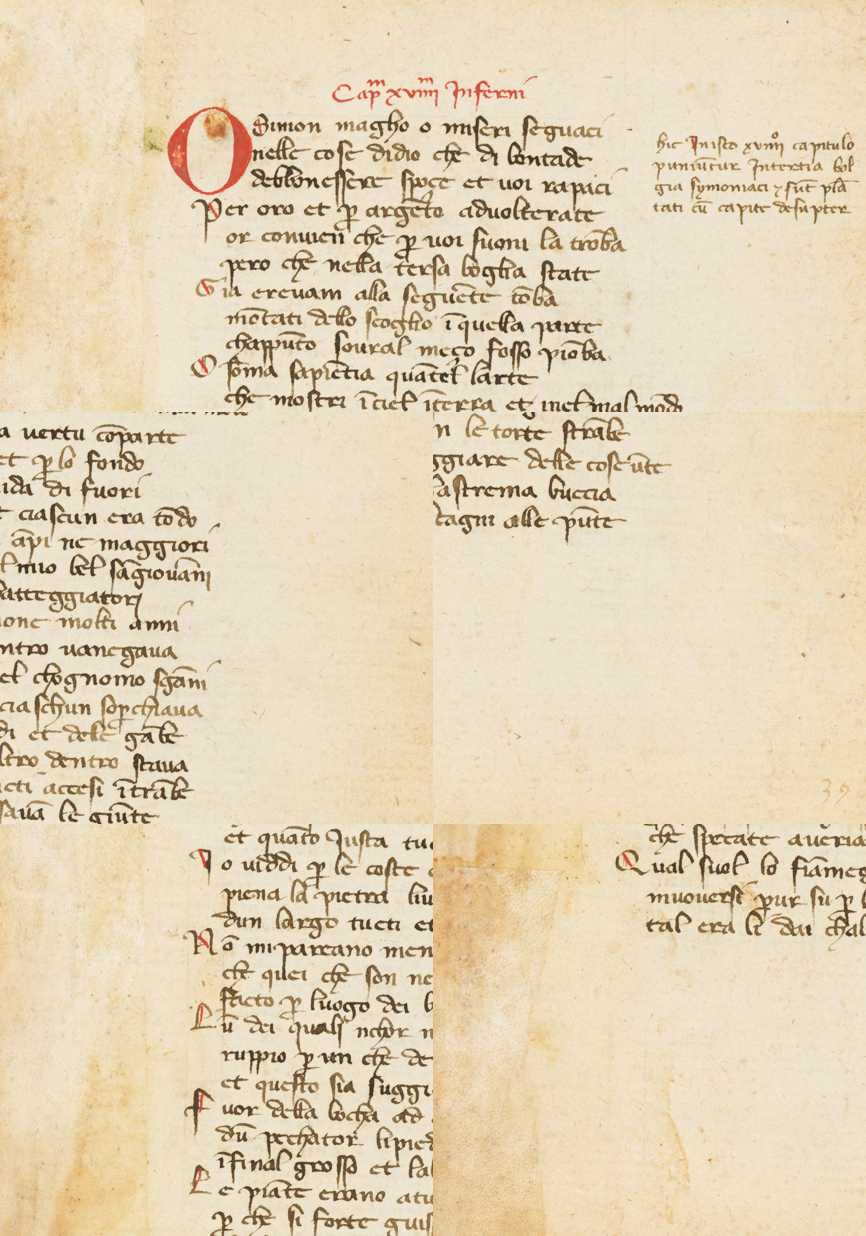 Cap̄m xviiiim Inferni
O Simon magho o miseri seguaci
nelle cose didio che di bontade
debbonessere spoçe et uoi rapaci
Per oro et p̱ argēto advolterate
or convien̄ che p̱ uoi suoni la trōba
pero che nella tersa bogḣia state
Gia erevam alla seguēte tōba
mōtati dello scoglio ī quella parte
chappūto soural meço fosso piōba
O sōma sapiētia quātel̄ larte
che mostri ī ciel ī terra et inel mal mōdo
hic In isto xviiiiº capitulo
puniūtur In tertia bol
gia symoniaci ⁊ sūt plā
tati cū capite desupter
a vertu cōparte
et p̱ lo fondo
uida di fuori
t ciascun era tōdo
āpi ne maggiori
l mio bel sāgiovāni
batteggiatorj
one molti anni
ntro vanegava
el chognomo sgāni
ciaschun sop̱chiava
di et dele gābe
ltro dentro stava
ucti accesi ītrābe
savā le giūte
n le torte strābe
ggiare delle cose ūte
lastrema buccia
tagni alle pūte
39
et quāto Justa tu
Io uiddi p̱ le coste
piena la pietra liu
dun largo tucti et
Nō mi pareano men
che quei che son ne
facto p̱ luogo dei b
Lū dei quali nchor n
ruppio p̱ un che de
et questo sia suggi
Fuor della bocha ad
dū pechator li pied
īfinal grosso et lal
Le piāte erano atu
p̱ che si forte guis
che speçate averia
Qual suol lo fiāmeg
muoversi pur su p̱ l
tal era li dai chal